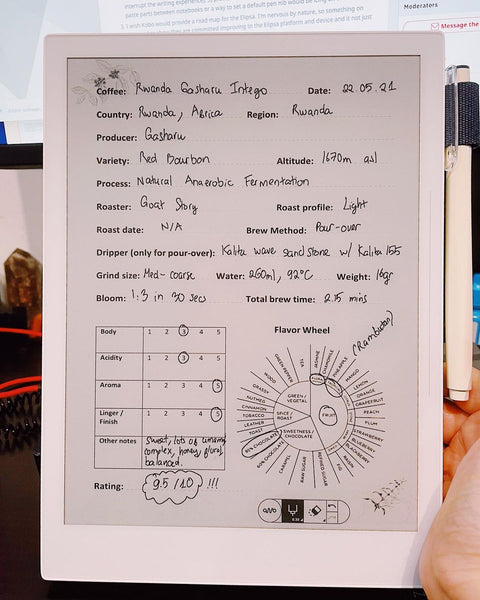 interrupt the writing experience.
paste parts between notebooks or a way to set a default pen
5. I wish Kobo would provide a road map for the Elipsa. I'm nervous by nature, so something
committed improving to the Elipsa platform and device and it not just
Moderators
Message the
Coffee: Rwanda Gasharu Intego Date: 22.05.21
Country: Rwanda, Africa Region: Rwanda
Producer: Gasharu
Variety: Red Bourbon Altitude: 1670m asl
Process: Natural Anaerobic Fermentation
Roaster: Goat Story Roast profile: Light
Roast date: N/A Brew Method: Pour-over
Dripper (only for pour-over): Kalita wave sandstone w/ Kalita 155
Grind size: Med-coarse Water: 260ml, 92°C Weight: 16gr
Bloom: 1:3 in 30 secs Total brew time: 2.15 mins
Body 1 2 3 4 5
Acidity 1 2 3 4 5
Aroma 1 2 3 4 5
Linger / Finish 1 2 3 4 5
Other notes
sweet, lots of
complex, honey, floral,
balanced.
Rating: 9.5/10 !!!
Flavor Wheel
(Rambutan)
GREEN / VEGETAL
SPICE / ROAST
SWEETNESS / CHOCOLATE
FRUIT
FLORAL
TEA
JASMINE
CHAMOMILE
PINEAPPLE
MANGO
LEMON
ORANGE
GRAPEFRUIT
PEACH
PLUM
STRAWBERRY
BLUEBERRY
BLACKBERRY
RAISIN
FIG
REFINED SUGAR
RAW SUGAR
CARAMEL
60% CHOCOLATE
80% CHOCOLATE
TOAST
LEATHER
TOBACCO
CINNAMON
NUTMEG
GRASSY
WOOD
GREEN PEPPER